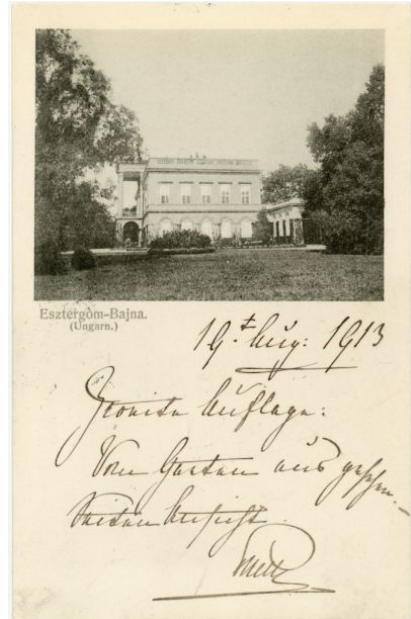 Esztergòm-Bajna.
(Ungarn.)
19.t Aug: 1913
Zweite Auflage:
Vom Garten aus gesehen.—
Seiten Ansicht.